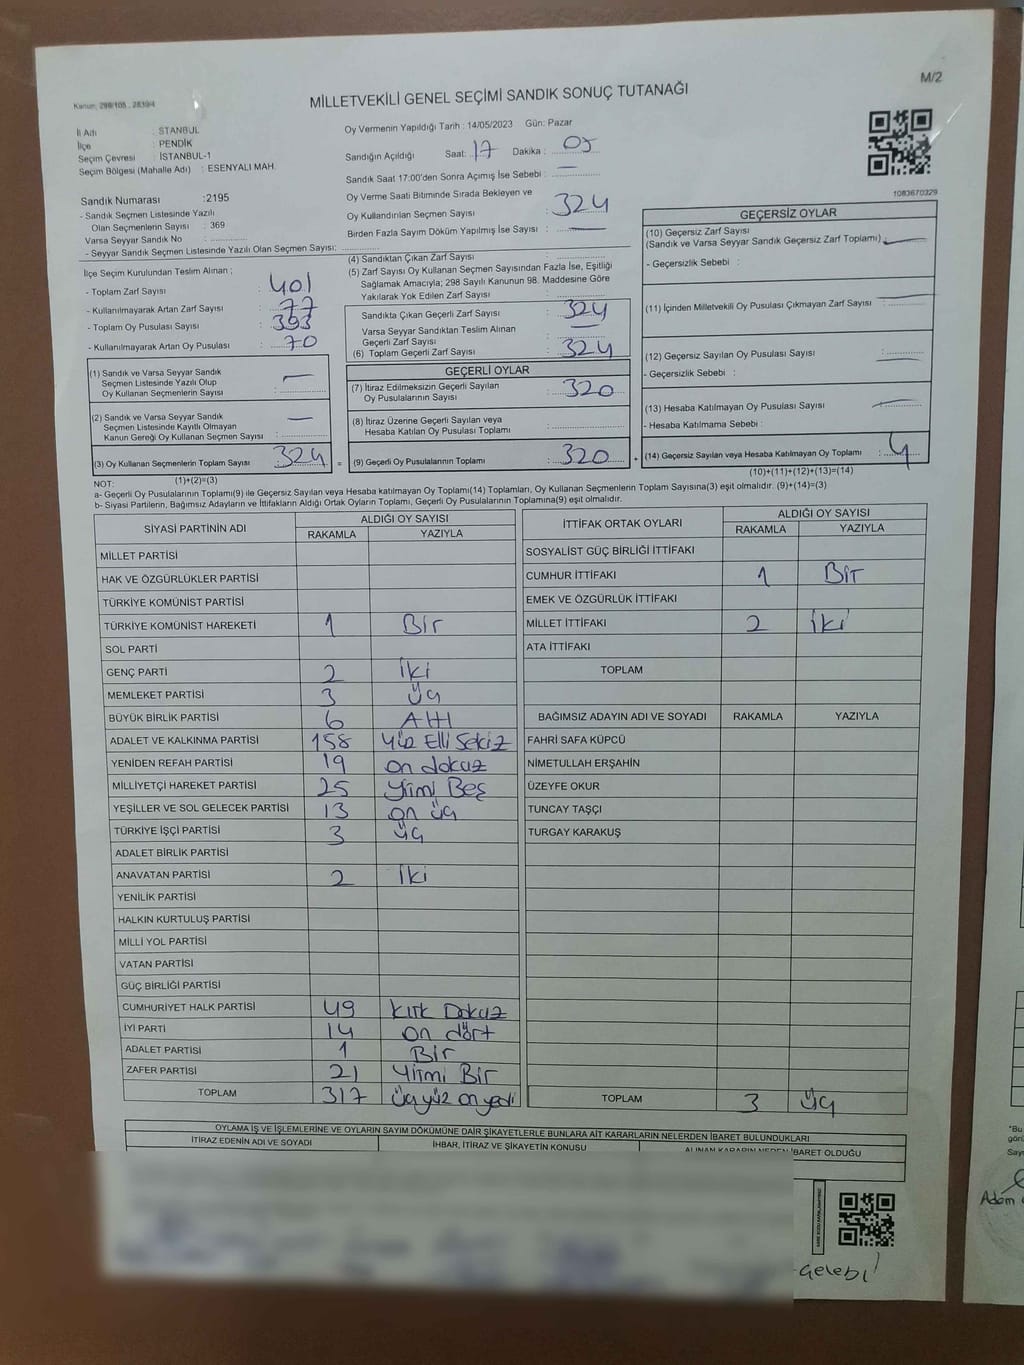 M/2
Kanun: 298/105 , 2839/4
MİLLETVEKİLİ GENEL SEÇİMİ SANDIK SONUÇ TUTANAĞI
İl Adı : STANBUL
İlçe : PENDİK
Seçim Çevresi : İSTANBUL-1
Seçim Bölgesi (Mahalle Adı) : ESENYALI MAH.
Oy Vermenin Yapıldığı Tarih : 14/05/2023 Gün: Pazar
Sandığın Açıldığı Saat: 17 Dakika : 05
Sandık Saat 17:00'den Sonra Açımış İse Sebebi : —
Oy Verme Saati Bitiminde Sırada Bekleyen ve
Oy Kullandırılan Seçmen Sayısı : 324
Birden Fazla Sayım Döküm Yapılmış İse Sayısı : —
1083670329
Sandık Numarası :2195
- Sandık Seçmen Listesinde Yazılı
Olan Seçmenlerin Sayısı : 369
Varsa Seyyar Sandık No :
- Seyyar Sandık Seçmen Listesinde Yazılı Olan Seçmen Sayısı:
İlçe Seçim Kurulundan Teslim Alınan ;
- Toplam Zarf Sayısı : 401
- Kullanılmayarak Artan Zarf Sayısı : 77
- Toplam Oy Pusulası Sayısı : 393
- Kullanılmayarak Artan Oy Pusulası : 70
(1) Sandık ve Varsa Seyyar Sandık
Seçmen Listesinde Yazılı Olup
Oy Kullanan Seçmenlerin Sayısı : —
(2) Sandık ve Varsa Seyyar Sandık
Seçmen Listesinde Kayıtlı Olmayan
Kanun Gereği Oy Kullanan Seçmen Sayısı : —
(3) Oy Kullanan Seçmenlerin Toplam Sayısı 324 =
(1)+(2)=(3)
(4) Sandıktan Çıkan Zarf Sayısı :
(5) Zarf Sayısı Oy Kullanan Seçmen Sayısından Fazla İse, Eşitliği
Sağlamak Amacıyla; 298 Sayılı Kanunun 98. Maddesine Göre
Yakılarak Yok Edilen Zarf Sayısı :
Sandıkta Çıkan Geçerli Zarf Sayısı : 324
Varsa Seyyar Sandıktan Teslim Alınan
Geçerli Zarf Sayısı : —
(6) Toplam Geçerli Zarf Sayısı : 324
GEÇERLİ OYLAR
(7) İtiraz Edilmeksizin Geçerli Sayılan
Oy Pusulalarının Sayısı : 320
(8) İtiraz Üzerine Geçerli Sayılan veya
Hesaba Katılan Oy Pusulası Toplamı :
(9) Geçerli Oy Pusulalarının Toplamı : 320 +
GEÇERSİZ OYLAR
(10) Geçersiz Zarf Sayısı
(Sandık ve Varsa Seyyar Sandık Geçersiz Zarf Toplamı) : —
- Geçersizlik Sebebi :
(11) İçinden Milletvekili Oy Pusulası Çıkmayan Zarf Sayısı : —
(12) Geçersiz Sayılan Oy Pusulası Sayısı : —
- Geçersizlik Sebebi :
(13) Hesaba Katılmayan Oy Pusulası Sayısı : —
- Hesaba Katılmama Sebebi :
(14) Geçersiz Sayılan veya Hesaba Katılmayan Oy Toplamı : 4
(10)+(11)+(12)+(13)=(14)
NOT:
a- Geçerli Oy Pusulalarının Toplamı(9) ile Geçersiz Sayılan veya Hesaba katılmayan Oy Toplamı(14) Toplamları, Oy Kullanan Seçmenlerin Toplam Sayısına(3) eşit olmalıdır. (9)+(14)=(3)
b- Siyasi Partilerin, Bağımsız Adayların ve İttifakların Aldığı Ortak Oyların Toplamı, Geçerli Oy Pusulalarının Toplamına(9) eşit olmalıdır.
SİYASİ PARTİNİN ADI ALDIĞI OY SAYISI
RAKAMLA YAZIYLA
MİLLET PARTİSİ
HAK VE ÖZGÜRLÜKLER PARTİSİ
TÜRKİYE KOMÜNİST PARTİSİ
TÜRKİYE KOMÜNİST HAREKETİ 1 Bir
SOL PARTİ
GENÇ PARTİ 2 iki
MEMLEKET PARTİSİ 3 üç
BÜYÜK BİRLİK PARTİSİ 6 Altı
ADALET VE KALKINMA PARTİSİ 158 Yüz Elli Sekiz
YENİDEN REFAH PARTİSİ 19 on dokuz
MİLLİYETÇİ HAREKET PARTİSİ 25 Yirmi Beş
YEŞİLLER VE SOL GELECEK PARTİSİ 13 on üç
TÜRKİYE İŞÇİ PARTİSİ 3 üç
ADALET BİRLİK PARTİSİ
ANAVATAN PARTİSİ 2 iki
YENİLİK PARTİSİ
HALKIN KURTULUŞ PARTİSİ
MİLLİ YOL PARTİSİ
VATAN PARTİSİ
GÜÇ BİRLİĞİ PARTİSİ
CUMHURİYET HALK PARTİSİ 49 kırk Dokuz
İYİ PARTİ 14 on dört
ADALET PARTİSİ 1 Bir
ZAFER PARTİSİ 21 Yirmi Bir
TOPLAM 317 üçyüz onyedi
İTTİFAK ORTAK OYLARI ALDIĞI OY SAYISI
RAKAMLA YAZIYLA
SOSYALİST GÜÇ BİRLİĞİ İTTİFAKI
CUMHUR İTTİFAKI 1 Bir
EMEK VE ÖZGÜRLÜK İTTİFAKI
MİLLET İTTİFAKI 2 iki
ATA İTTİFAKI
TOPLAM
BAĞIMSIZ ADAYIN ADI VE SOYADI RAKAMLA YAZIYLA
FAHRİ SAFA KÜPCÜ
NİMETULLAH ERŞAHİN
ÜZEYFE OKUR
TUNCAY TAŞÇI
TURGAY KARAKUŞ
TOPLAM 3 üç
OYLAMA İŞ VE İŞLEMLERİNE VE OYLARIN SAYIM DÖKÜMÜNE DAİR ŞİKAYETLERLE BUNLARA AİT KARARLARIN NELERDEN İBARET BULUNDUKLARI
İTİRAZ EDENİN ADI VE SOYADI İHBAR, İTİRAZ VE ŞİKAYETİN KONUSU ALINAN KARARIN NEDEN İBARET OLDUĞU
Çelebi
"Bu
Adem